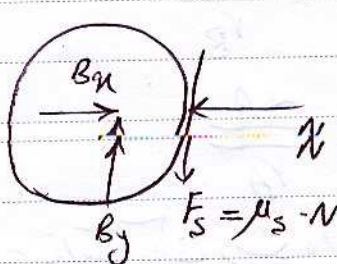 Bx
N
By
Fs = μs · N